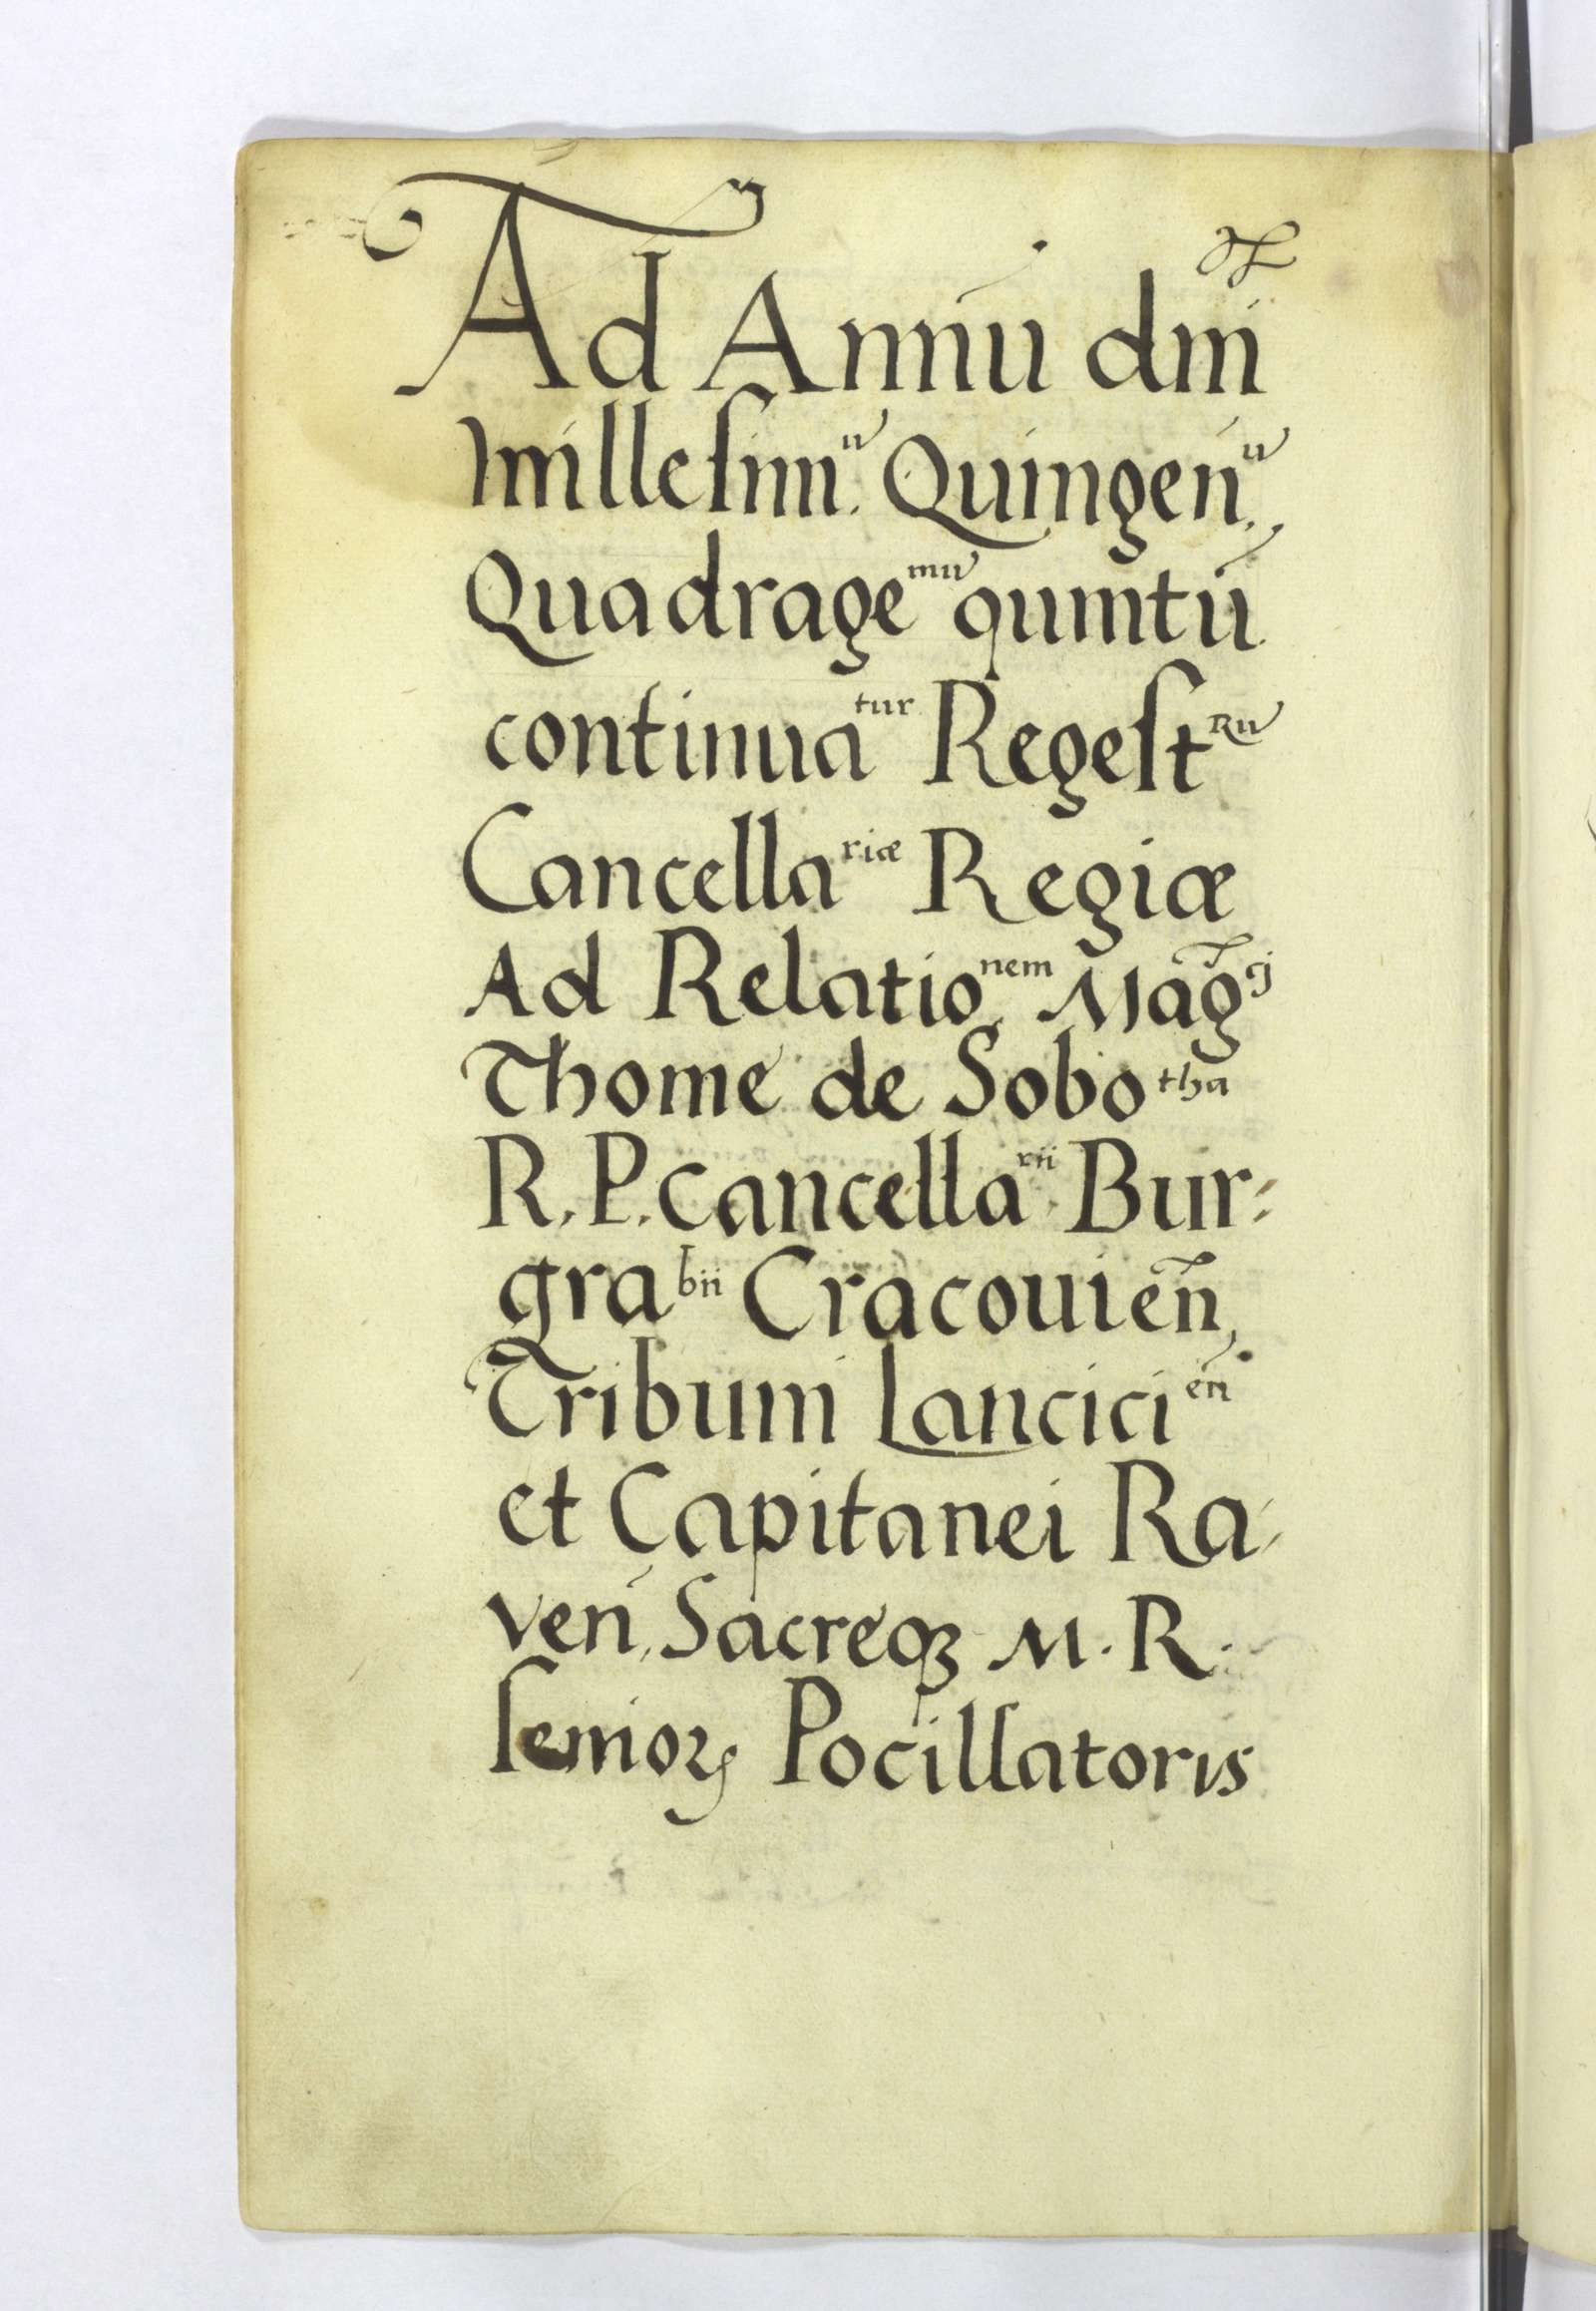 Ad Annū dm̄
millesimū. Quingenū.
Quadragemū quintū
continuatur Regestrū
Cancellariæ Regiæ
Ad Relationem Mag̅cj
Thome de Sobotha
R. P. cancellarii Bur:
grabii Cracouien̄,
Tribuni Lancicien̄
et Capitanei Ra,
ven̄, Sacreqꝫ M. R.
senioꝝ Pocillatoris